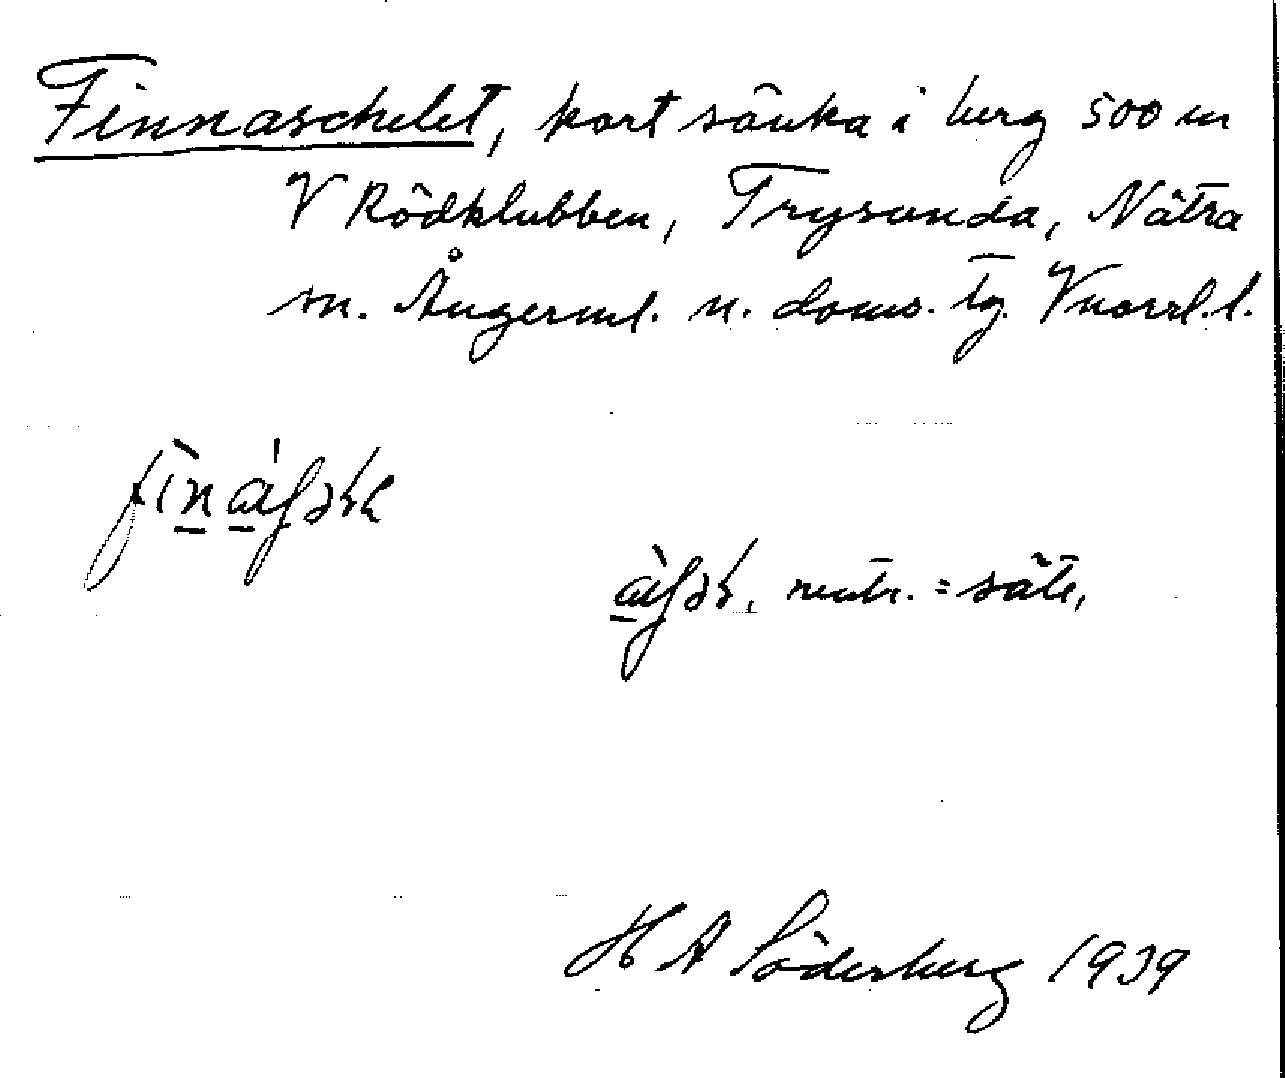 Finnaschelet, kort sänka i berg 500 m
V Rödklubben, Trysunda, Nätra
sn. Ångerml. n. doms. tg. Vnorrl. l.
neutr. = säte,
H A Söderberg 1939